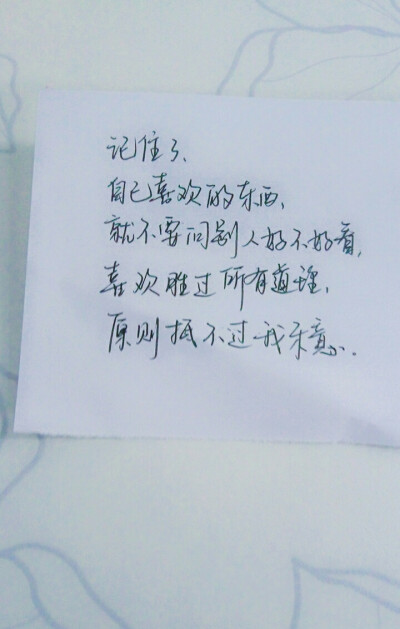 记住了、
自己喜欢的东西，
就不要问别人好不好看，
喜欢胜过所有道理，
原则抵不过我乐意.